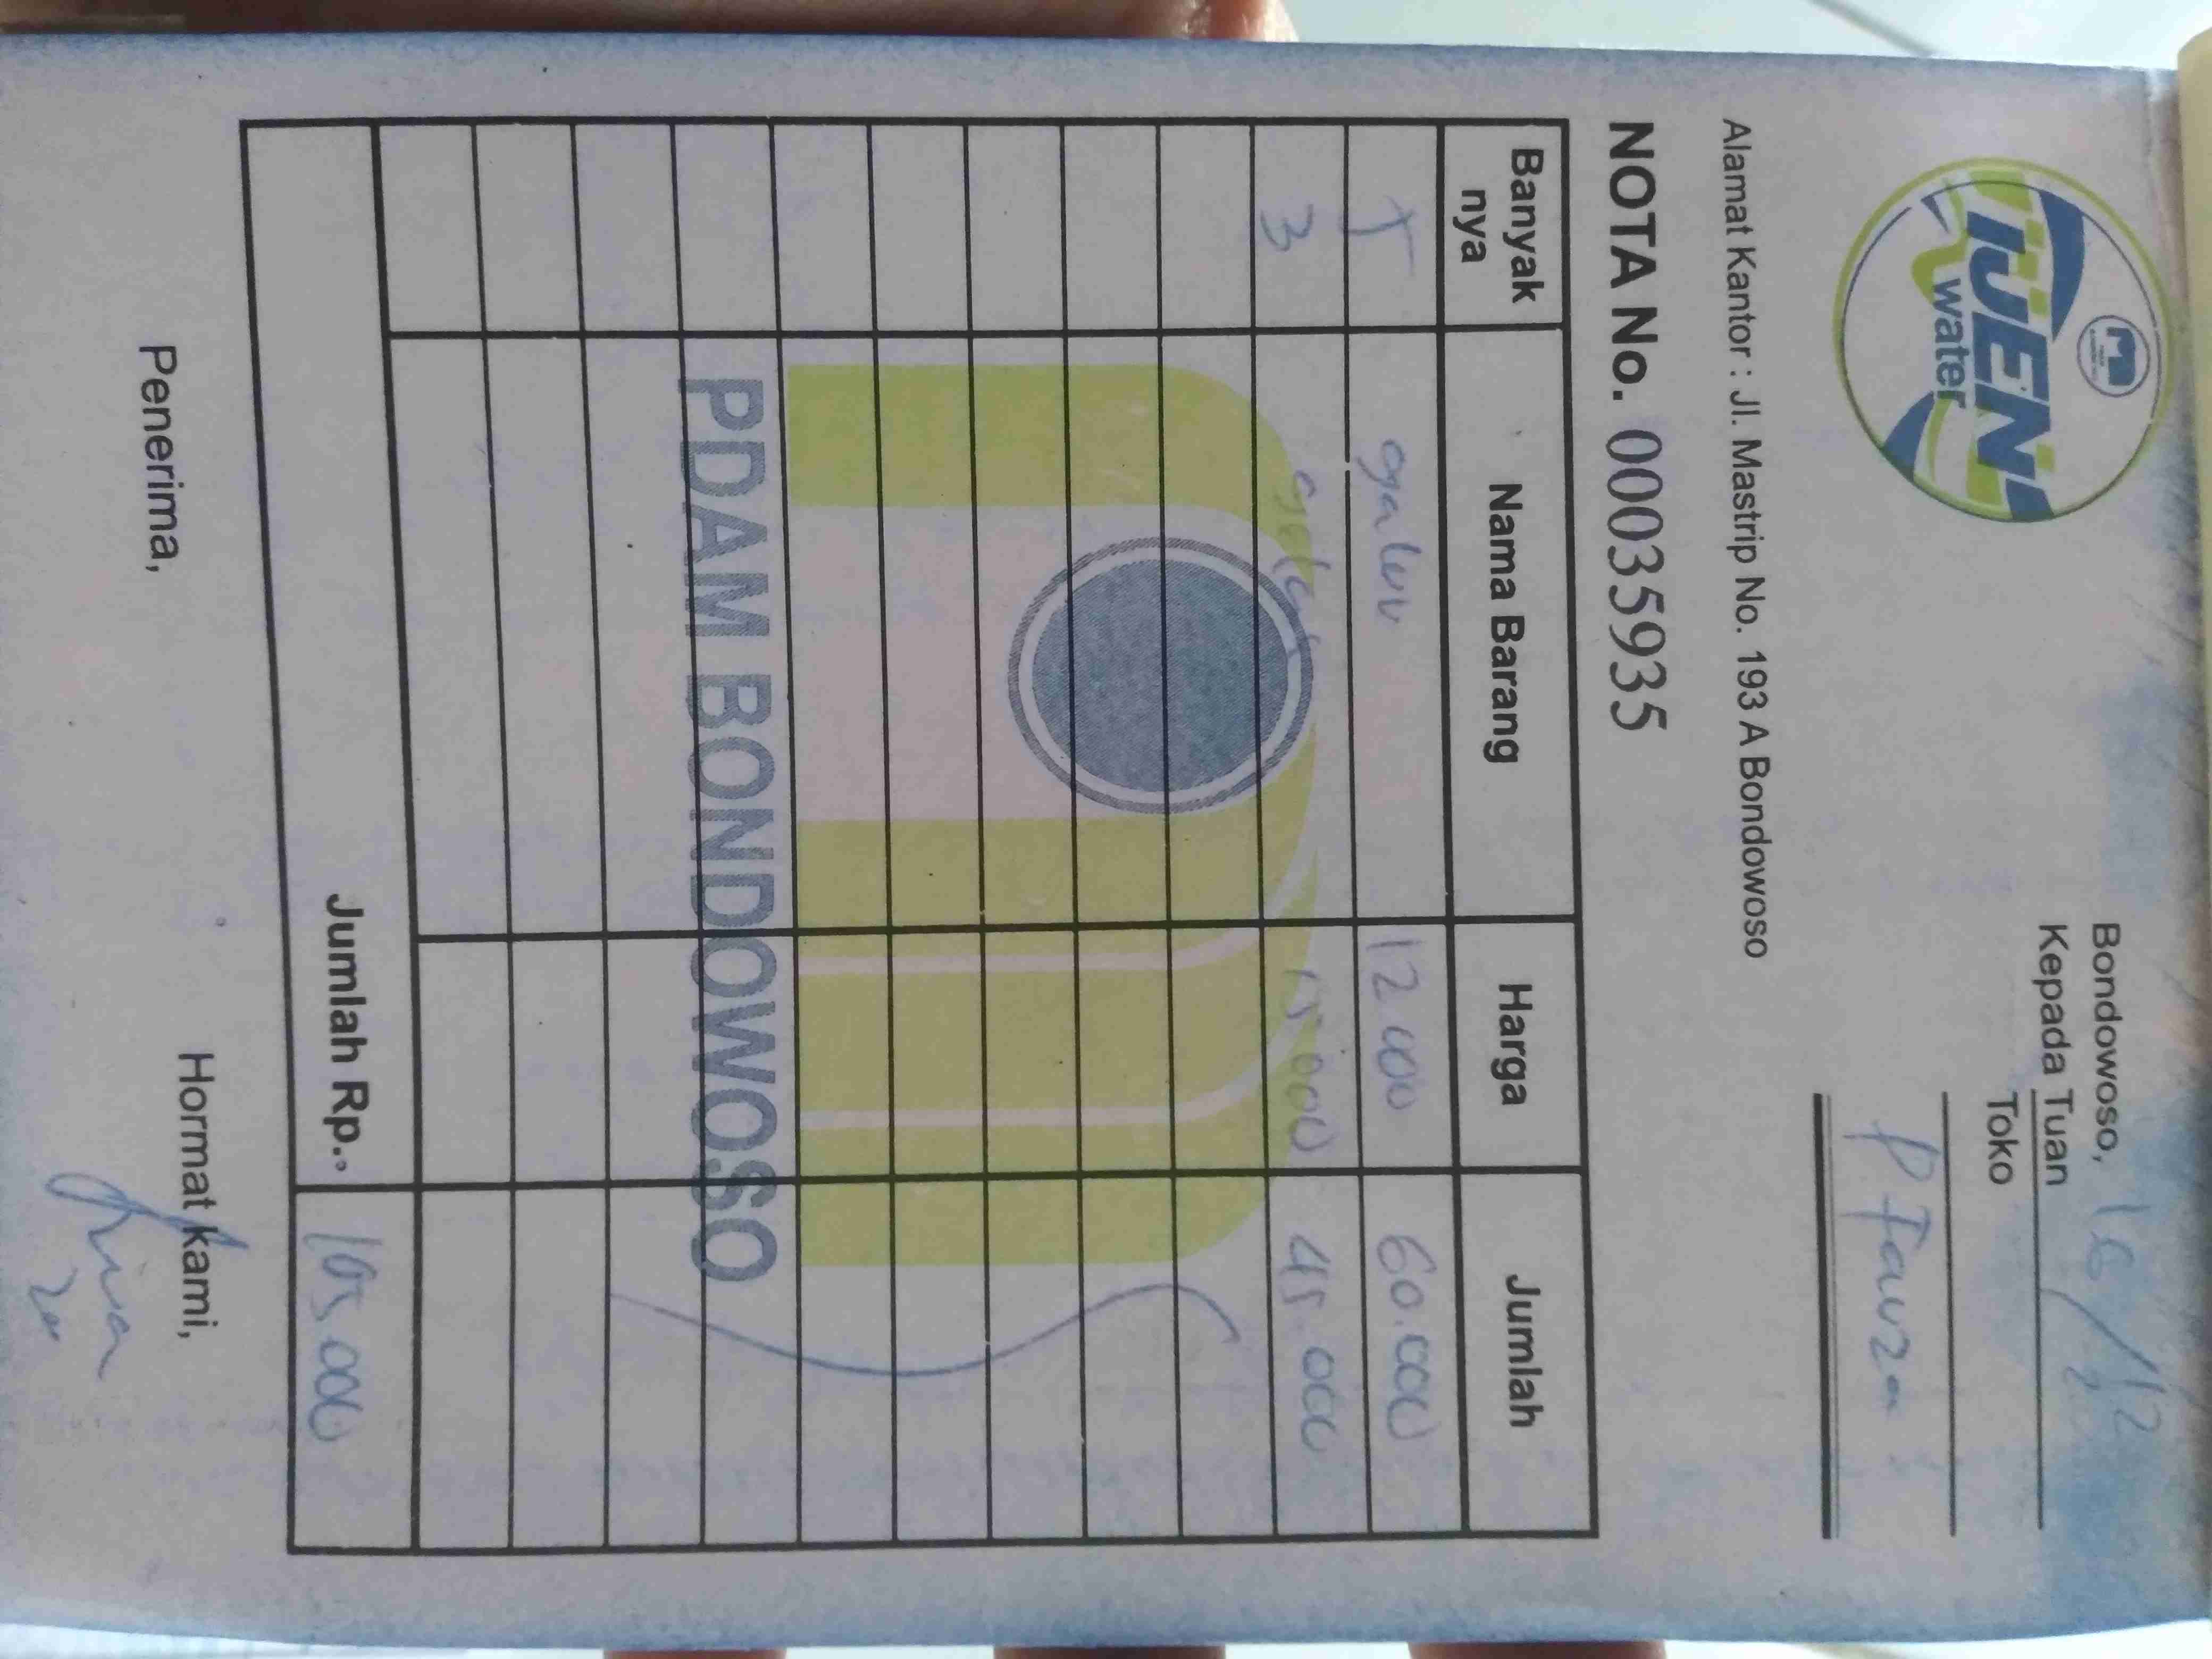 IJEN
water
Bondowoso, 16/12
Kepada Tuan
Toko
P Fauza
Alamat Kantor : Jl. Mastrip No. 193 A Bondowoso
NOTA No. 000359935
Banyak nya Nama Barang Harga Jumlah
5 galon 12.000 60.000
3 15.000 45.000
PDAM BONDOWOSO
Jumlah Rp. 105.000
Penerima, Hormat kami,